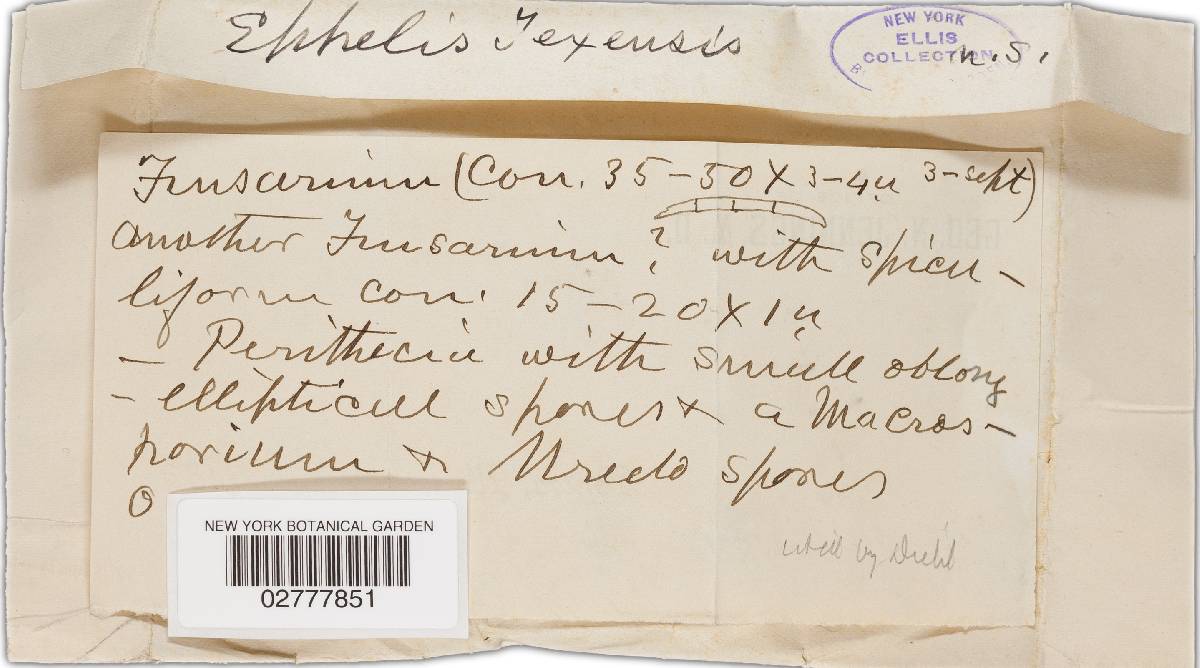 Ephelis Texensis n.s.
NEW YORK
ELLIS
COLLECTION
Fusarium (Con. 35-50 X 3-4µ 3-sept)
another Fusarium? with spicu-
liform con. 15-20 X 1µ
- Perithecia with small oblong
- elliptical spores & a Macros-
porium & Uredo spores
O
NEW YORK BOTANICAL GARDEN
02777851
by Diehl